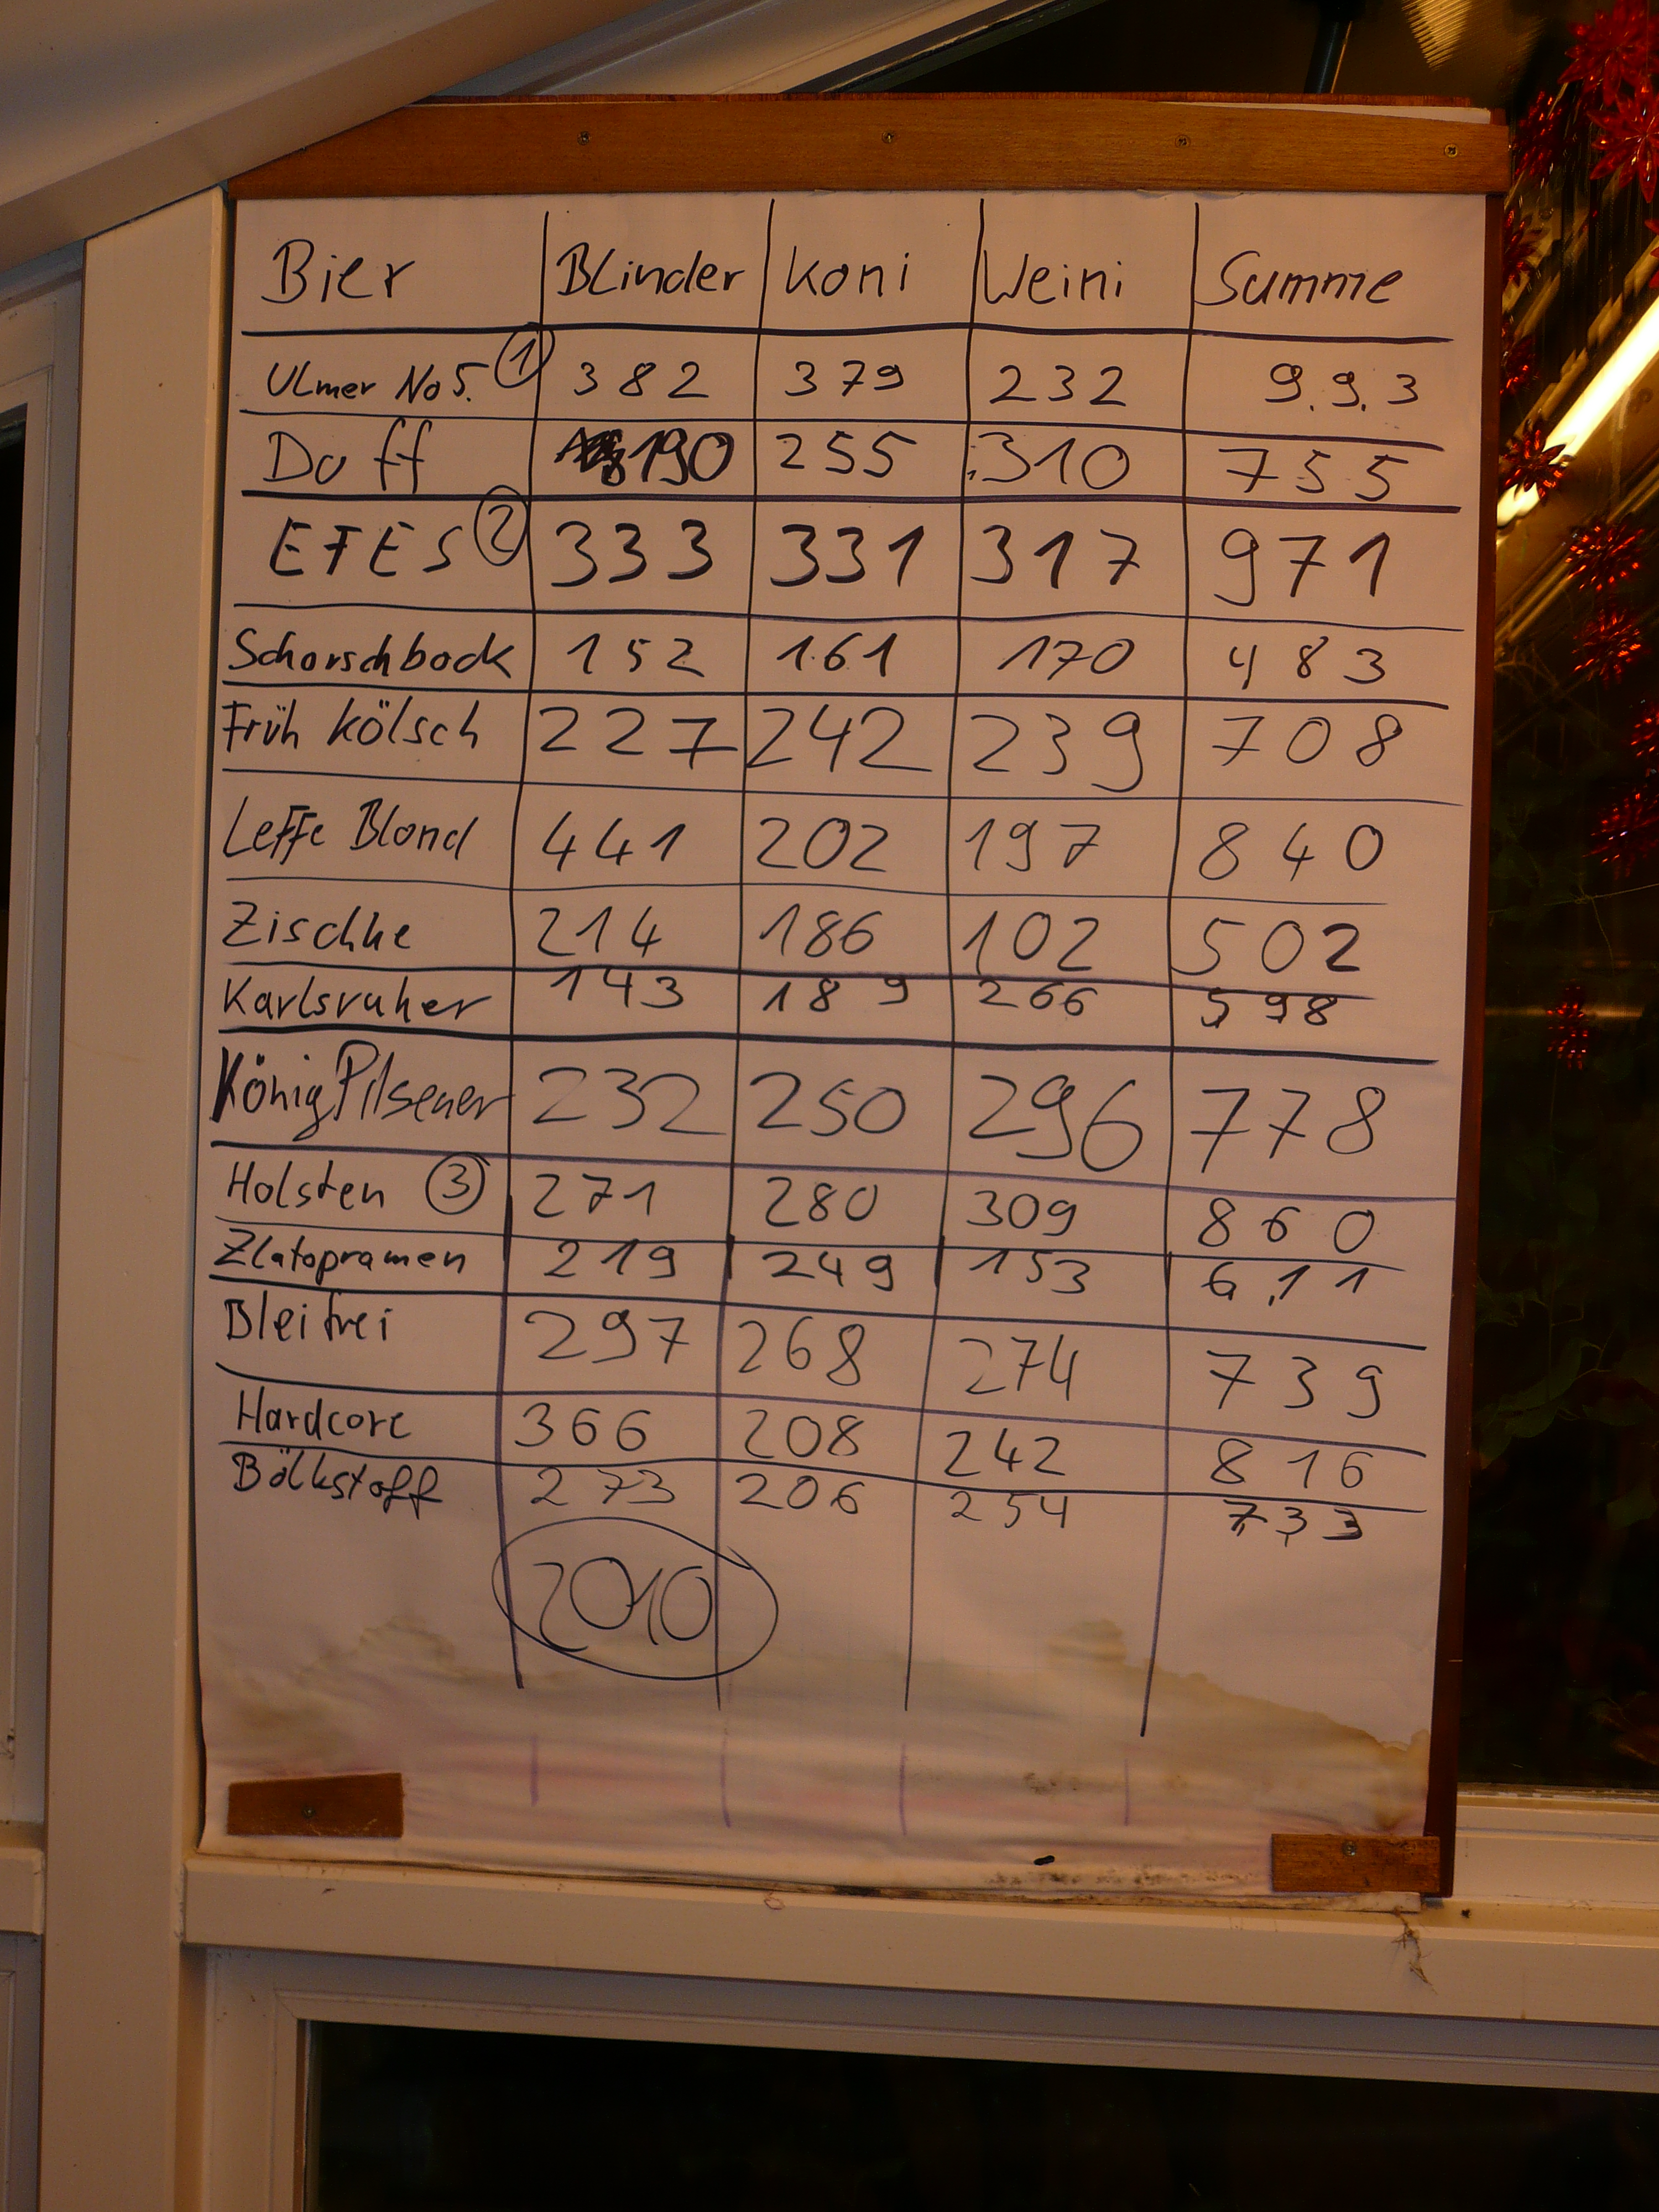 Bier Blinder Koni Weini Summe
Ulmer No5. 1 382 379 232 9.9.3
Duff 190 255 310 755
EFES 2 333 331 317 971
Schorschbock 152 161 170 483
Früh Kölsch 227 242 239 708
Leffe Blond 441 202 197 840
Zischke 214 186 102 502
Karlsruher 143 189 266 598
König Pilsener 232 250 296 778
Holsten 3 271 280 309 860
Zlatopramen 219 249 153 611
Bleifrei 297 268 274 739
Hardcore 366 208 242 816
Bölkstoff 273 206 254 733
2010